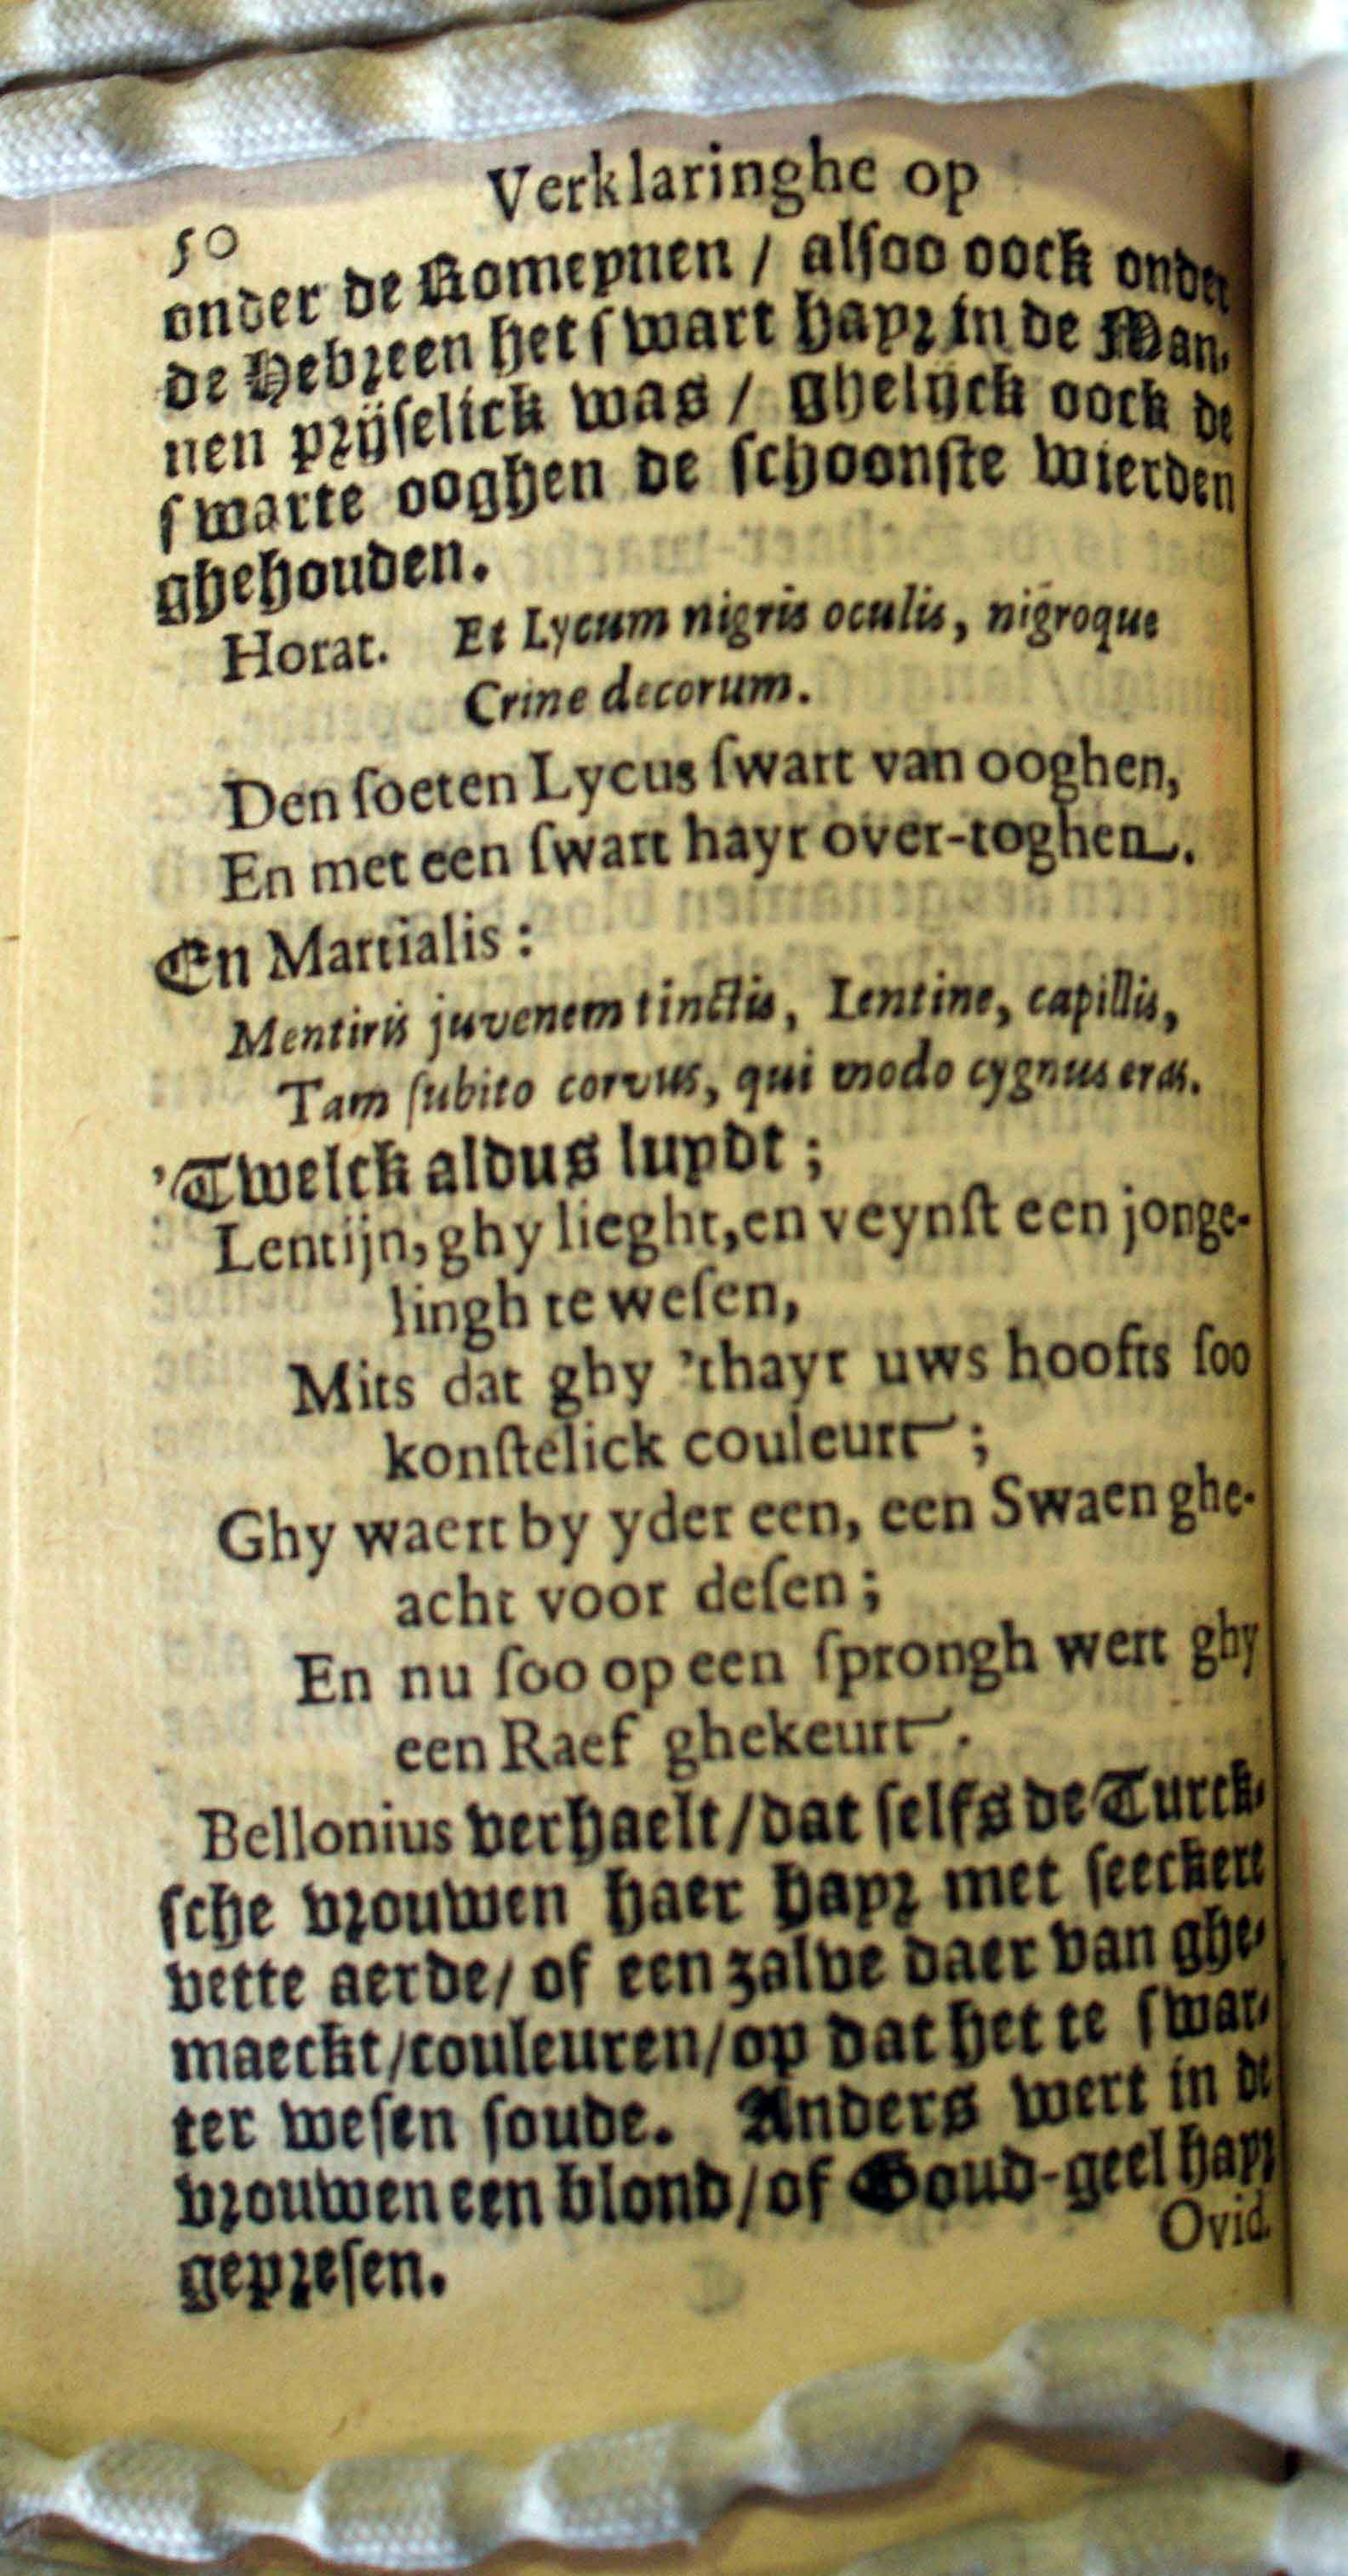 Verklaringhe op
50
onder de Romeynen / alſoo oock onder
de Hebreen het ſwart hayr in de Man-
nen prijſelick was / ghelijck oock de
ſwarte ooghen de ſchoonſte wierden
ghehouden.
Horat. Et Lycum nigris oculis, nigroque
Crine decorum.
Den ſoeten Lycus ſwart van ooghen,
En met een ſwart hayr over-toghen.
En Martialis :
Mentiris juvenem tinctis, Lentine, capillis,
Tam ſubito corvus, qui modo cygnus eras.
'Twelck aldus luydt ;
Lentijn, ghy lieght, en veynſt een jonge-
lingh te weſen,
Mits dat ghy 'thayr uws hoofts ſoo
konſtelick couleurt ;
Ghy waert by yder een, een Swaen ghe-
acht voor deſen ;
En nu ſoo op een ſprongh wert ghy
een Raef ghekeurt.
Bellonius verhaelt / dat ſelfs de Turck-
ſche vrouwen haer hayr met ſeeckere
vette aerde / of een zalve daer van ghe-
maeckt / couleuren / op dat het te ſwar-
ter weſen ſoude. Anders wert in de
vrouwen een blond / of Goud-geel hayr
gepreſen.
Ovid.